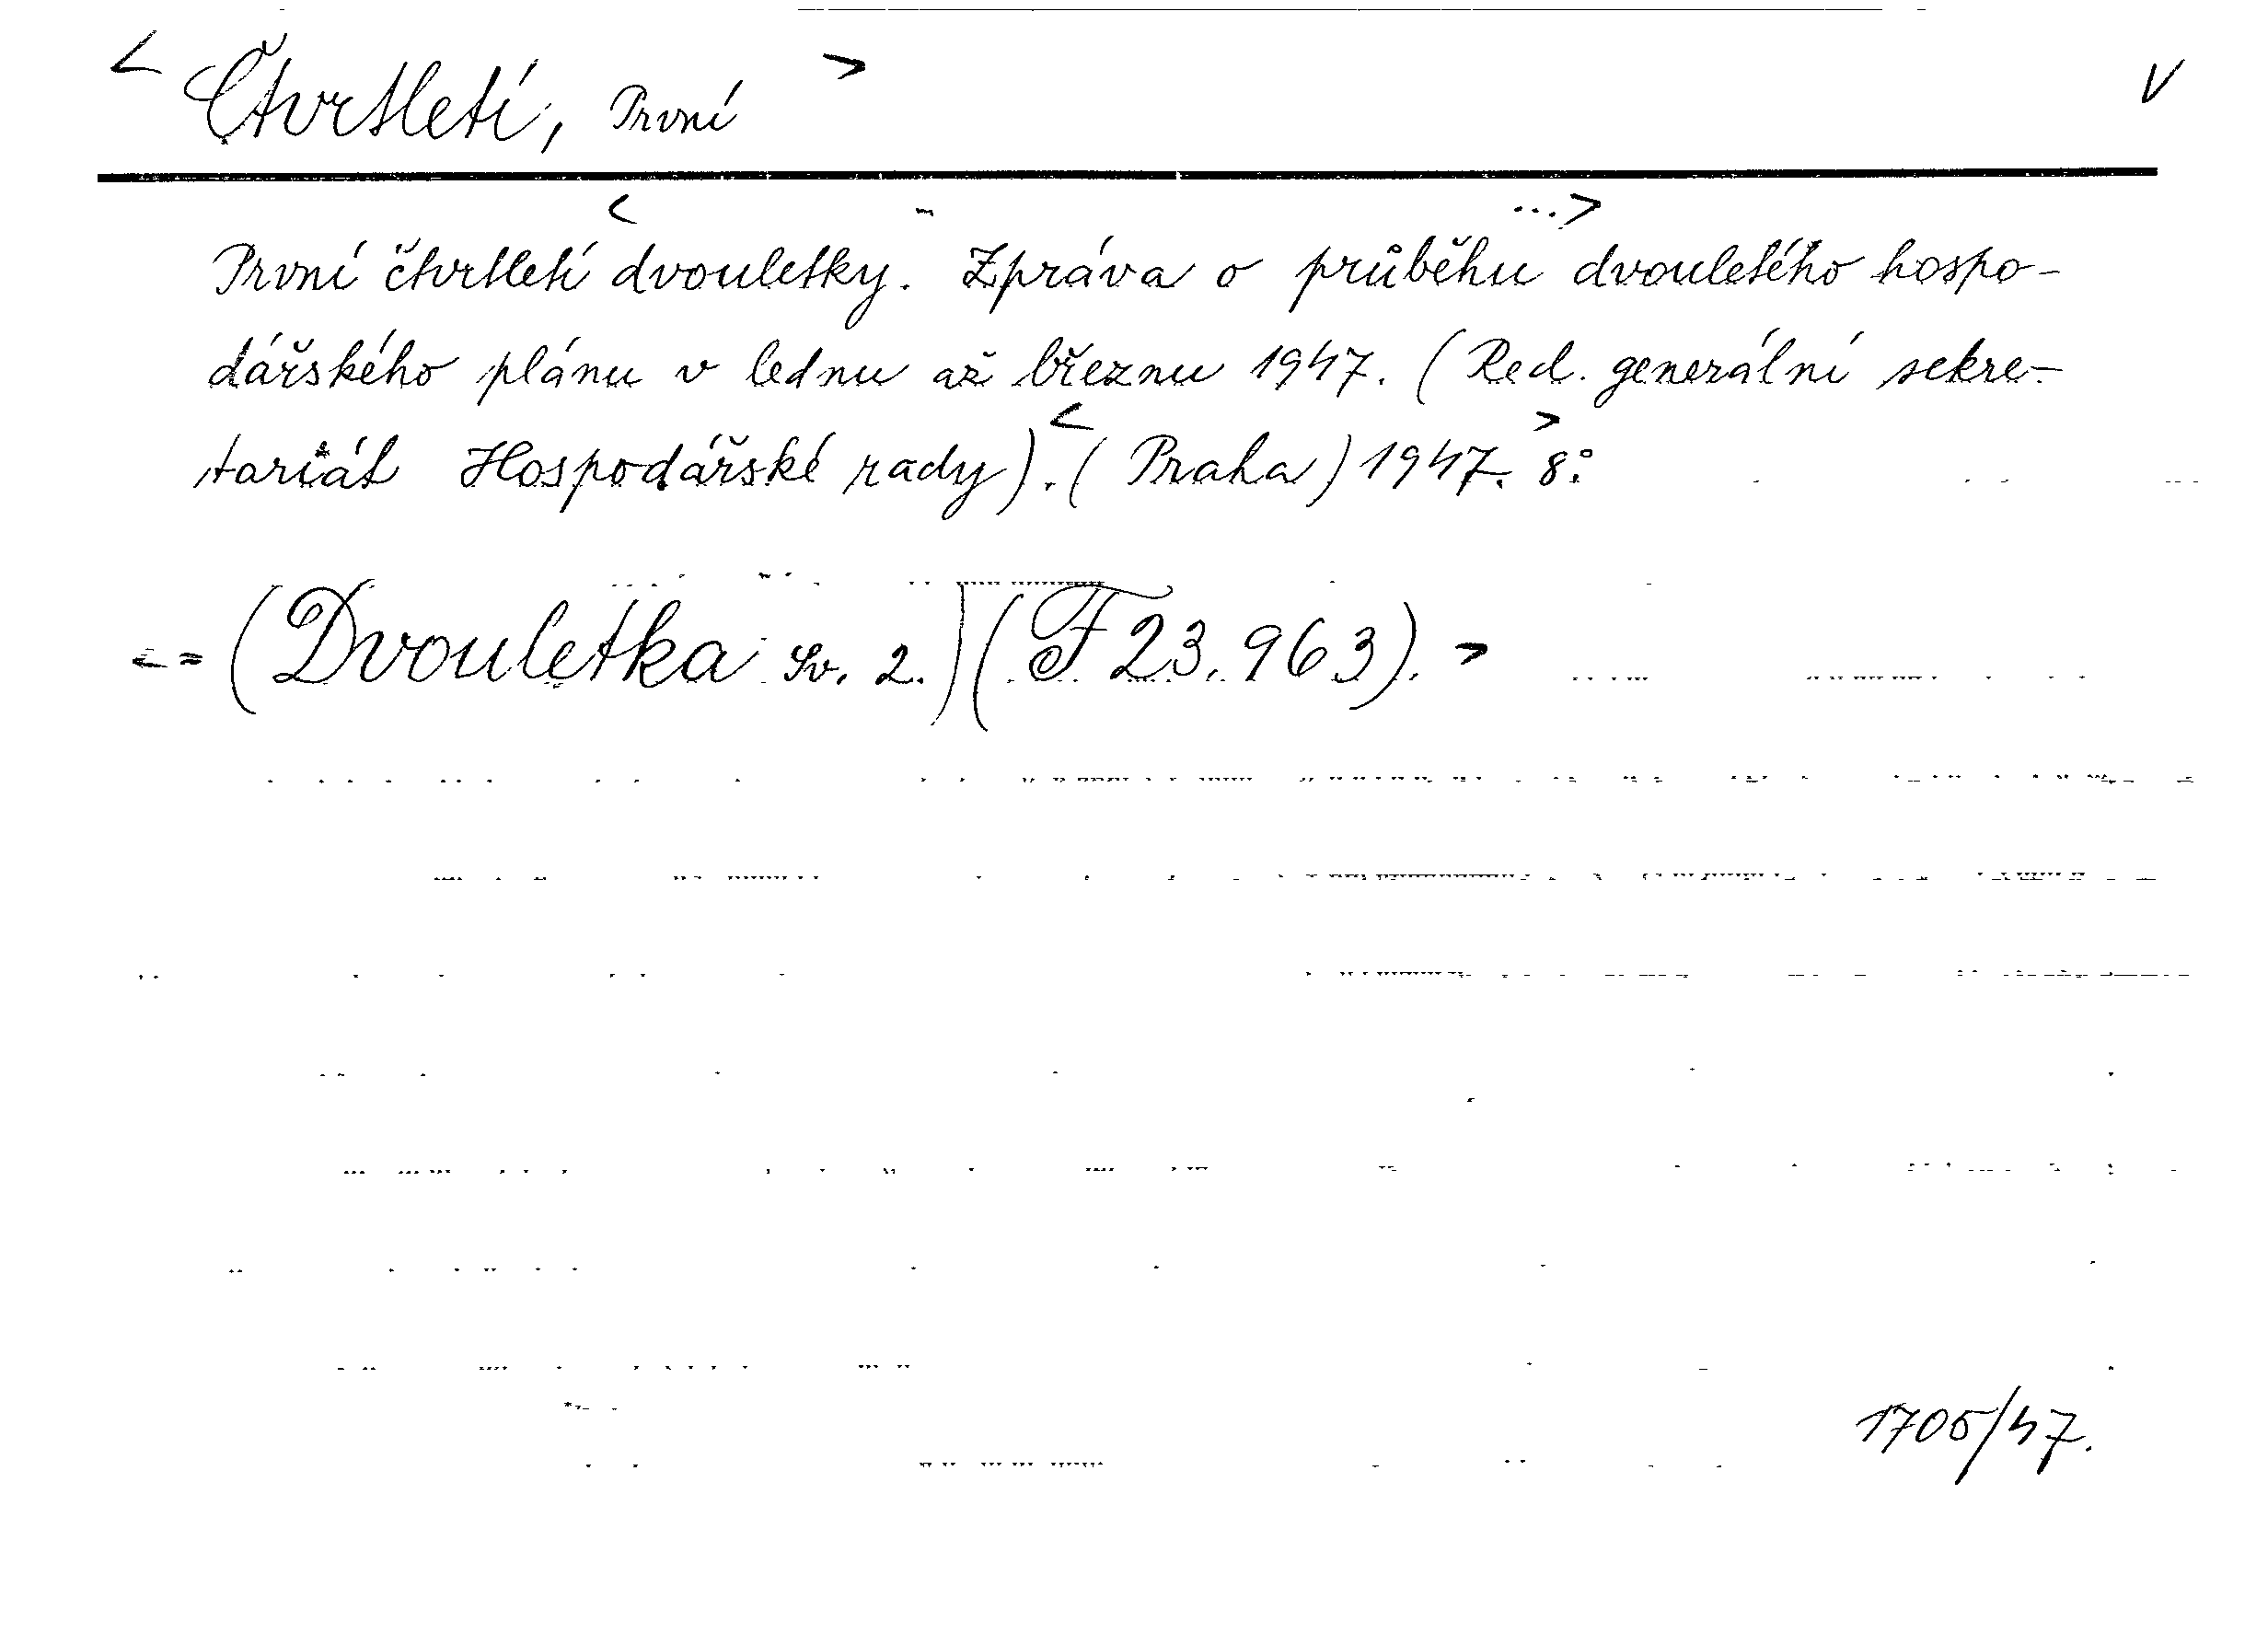 < Čtvrtletí, První > V
První čtvrtletí dvouletky. Zpráva o průběhu dvouletého hospo-
dářského plánu v lednu až březnu 1947. (Red. generální sekre-
tariát Hospodářské rady). (Praha) 1947. 8°.
<= (Dvouletka sv. 2.) (F 23.963). >
1705/47.